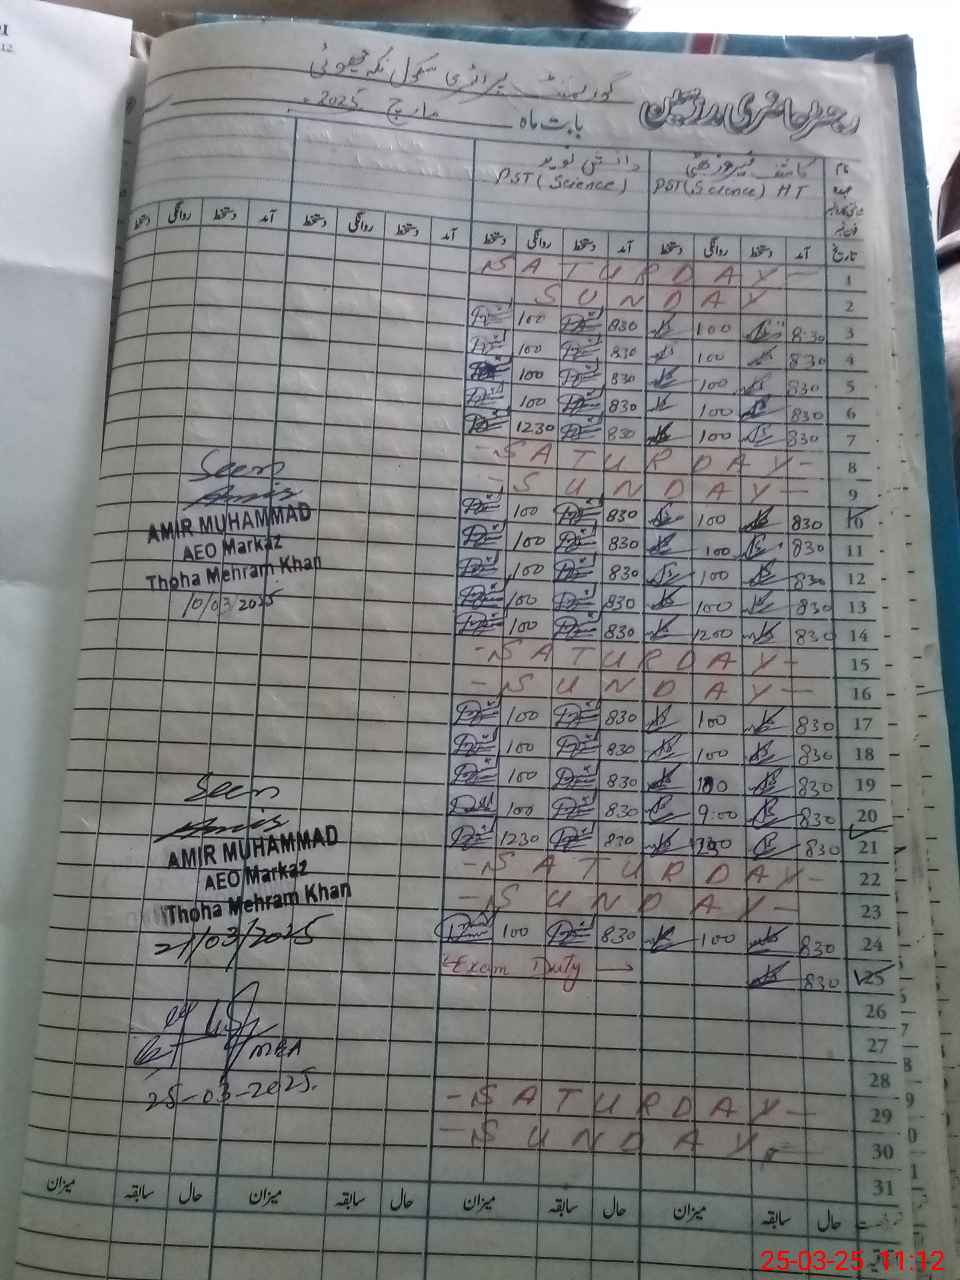 رجسٹر حاضری مدرسین
گورنمنٹ پرائمری سکول
بابت ماہ مارچ 2025
نام
عہدہ
PST (Science) HT
دانش نوید
PST (Science)
تاریخ آمد دستخط روانگی دستخط آمد دستخط روانگی دستخط آمد دستخط روانگی دستخط آمد دستخط روانگی دستخط
1 SATURDAY
2 SUNDAY
3 8:30 100 830 100
4 830 100 830 100
5 830 100 830 100
6 830 100 830 100
7 830 100 830 1230
8 - SATURDAY -
9 - SUNDAY -
10 830 100 830 100
11 830 100 830 100
12 830 100 830 100
13 830 100 830 100
14 830 1200 830 100
15 - SATURDAY -
16 - SUNDAY -
17 830 100 830 100
18 830 100 830 100
19 830 100 830 100
20 830 9:00 830 100
21 830 830 1230
22 - SATURDAY -
23 - SUNDAY -
24 830 100 830 100
25 830 Exam Duty →
26
27
28
29 - SATURDAY -
30 - SUNDAY
31
حال سابقہ میزان حال سابقہ میزان حال سابقہ میزان حال سابقہ میزان
Seen
AMIR MUHAMMAD
AEO Markaz
Thoha Mehram Khan
10/03/2025
Seen
AMIR MUHAMMAD
AEO Markaz
Thoha Mehram Khan
21/03/2025
MEA
25-03-2025.
25-03-25 11:12